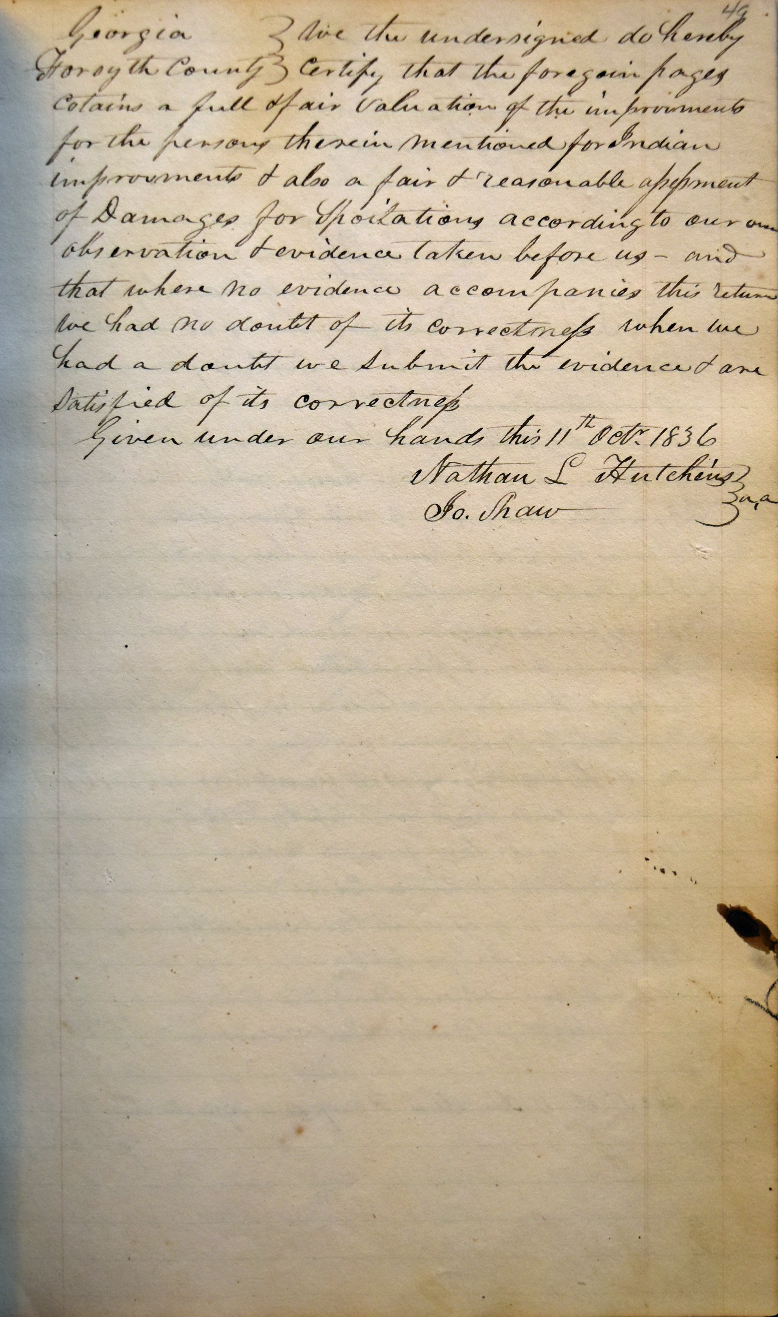 49
Georgia } We the undersigned do hereby
Forsyth County } Certify that the foregoin pages
cotains a full & fair valuation of the improvments
for the persons therein mentioned for Indian
improvments & also a fair & reasonable assessment
of Damages for Spoilations according to our own
observation & evidence taken before us - and
that where no evidence accompanies this return
we had no doubt of its correctness when we
had a doubt we submit the evidence & are
satisfied of its correctness
Given under our hands this 11th Octr. 1836
Nathan L Hutchins
Jo. Shaw